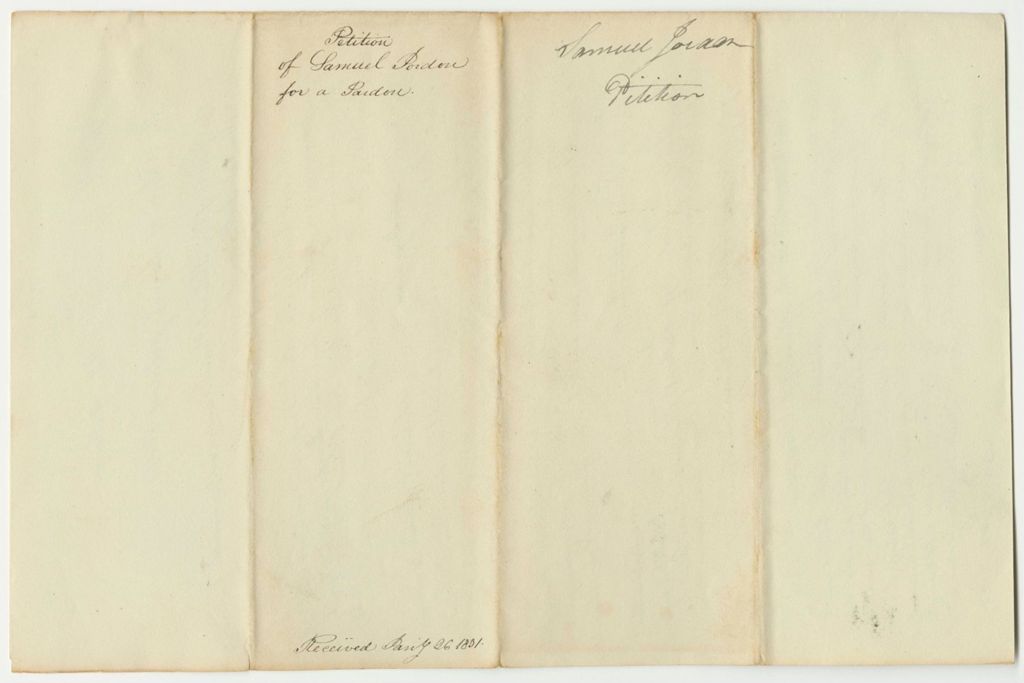 Petition
of Samuel Jordon
for a Pardon.
Received Jany 26 1831.
Samuel Jordan
Petition